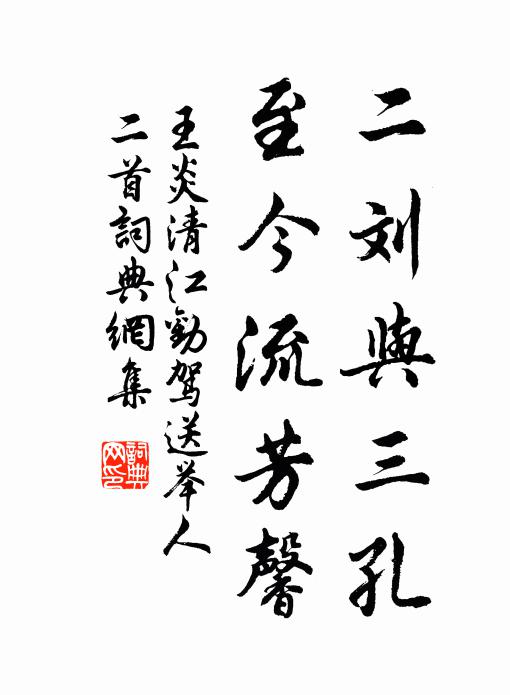 二刘與三孔
至今流芳馨
王炎清江勸駕送举人
二首詞典網集
詞典网印